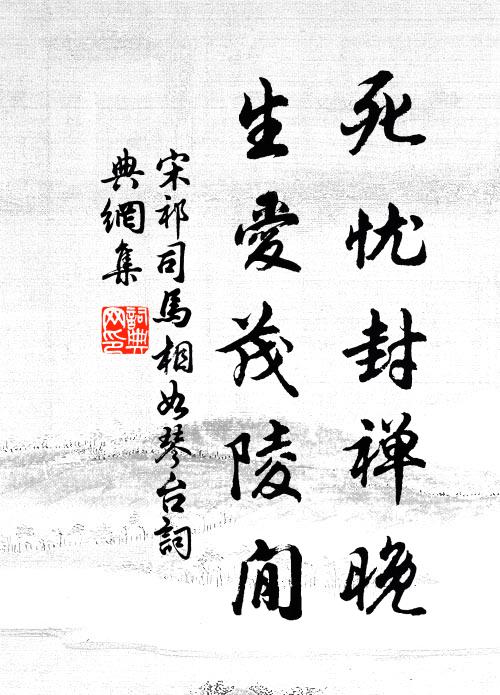 死忧封禅晚
生愛茂陵閒
宋祁司馬相如琴台詞
典網集
詞典
网印